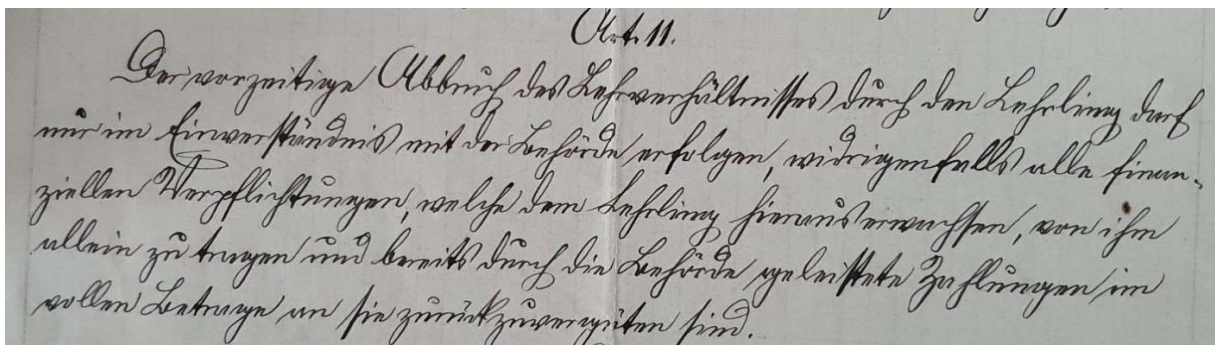 Art. 11.
Der vorzeitige Abbruch des Lehrverhältnisses durch den Lehrling darf
nur im Einverständnis mit der Behörde erfolgen, widrigenfalls alle finan-
ziellen Verpflichtungen, welche dem Lehrling hieraus erwachsen, von ihm
allein zu tragen und bereits durch die Behörde geleistete Zahlungen im
vollen Betrage an sie zurückzuvergüten sind.